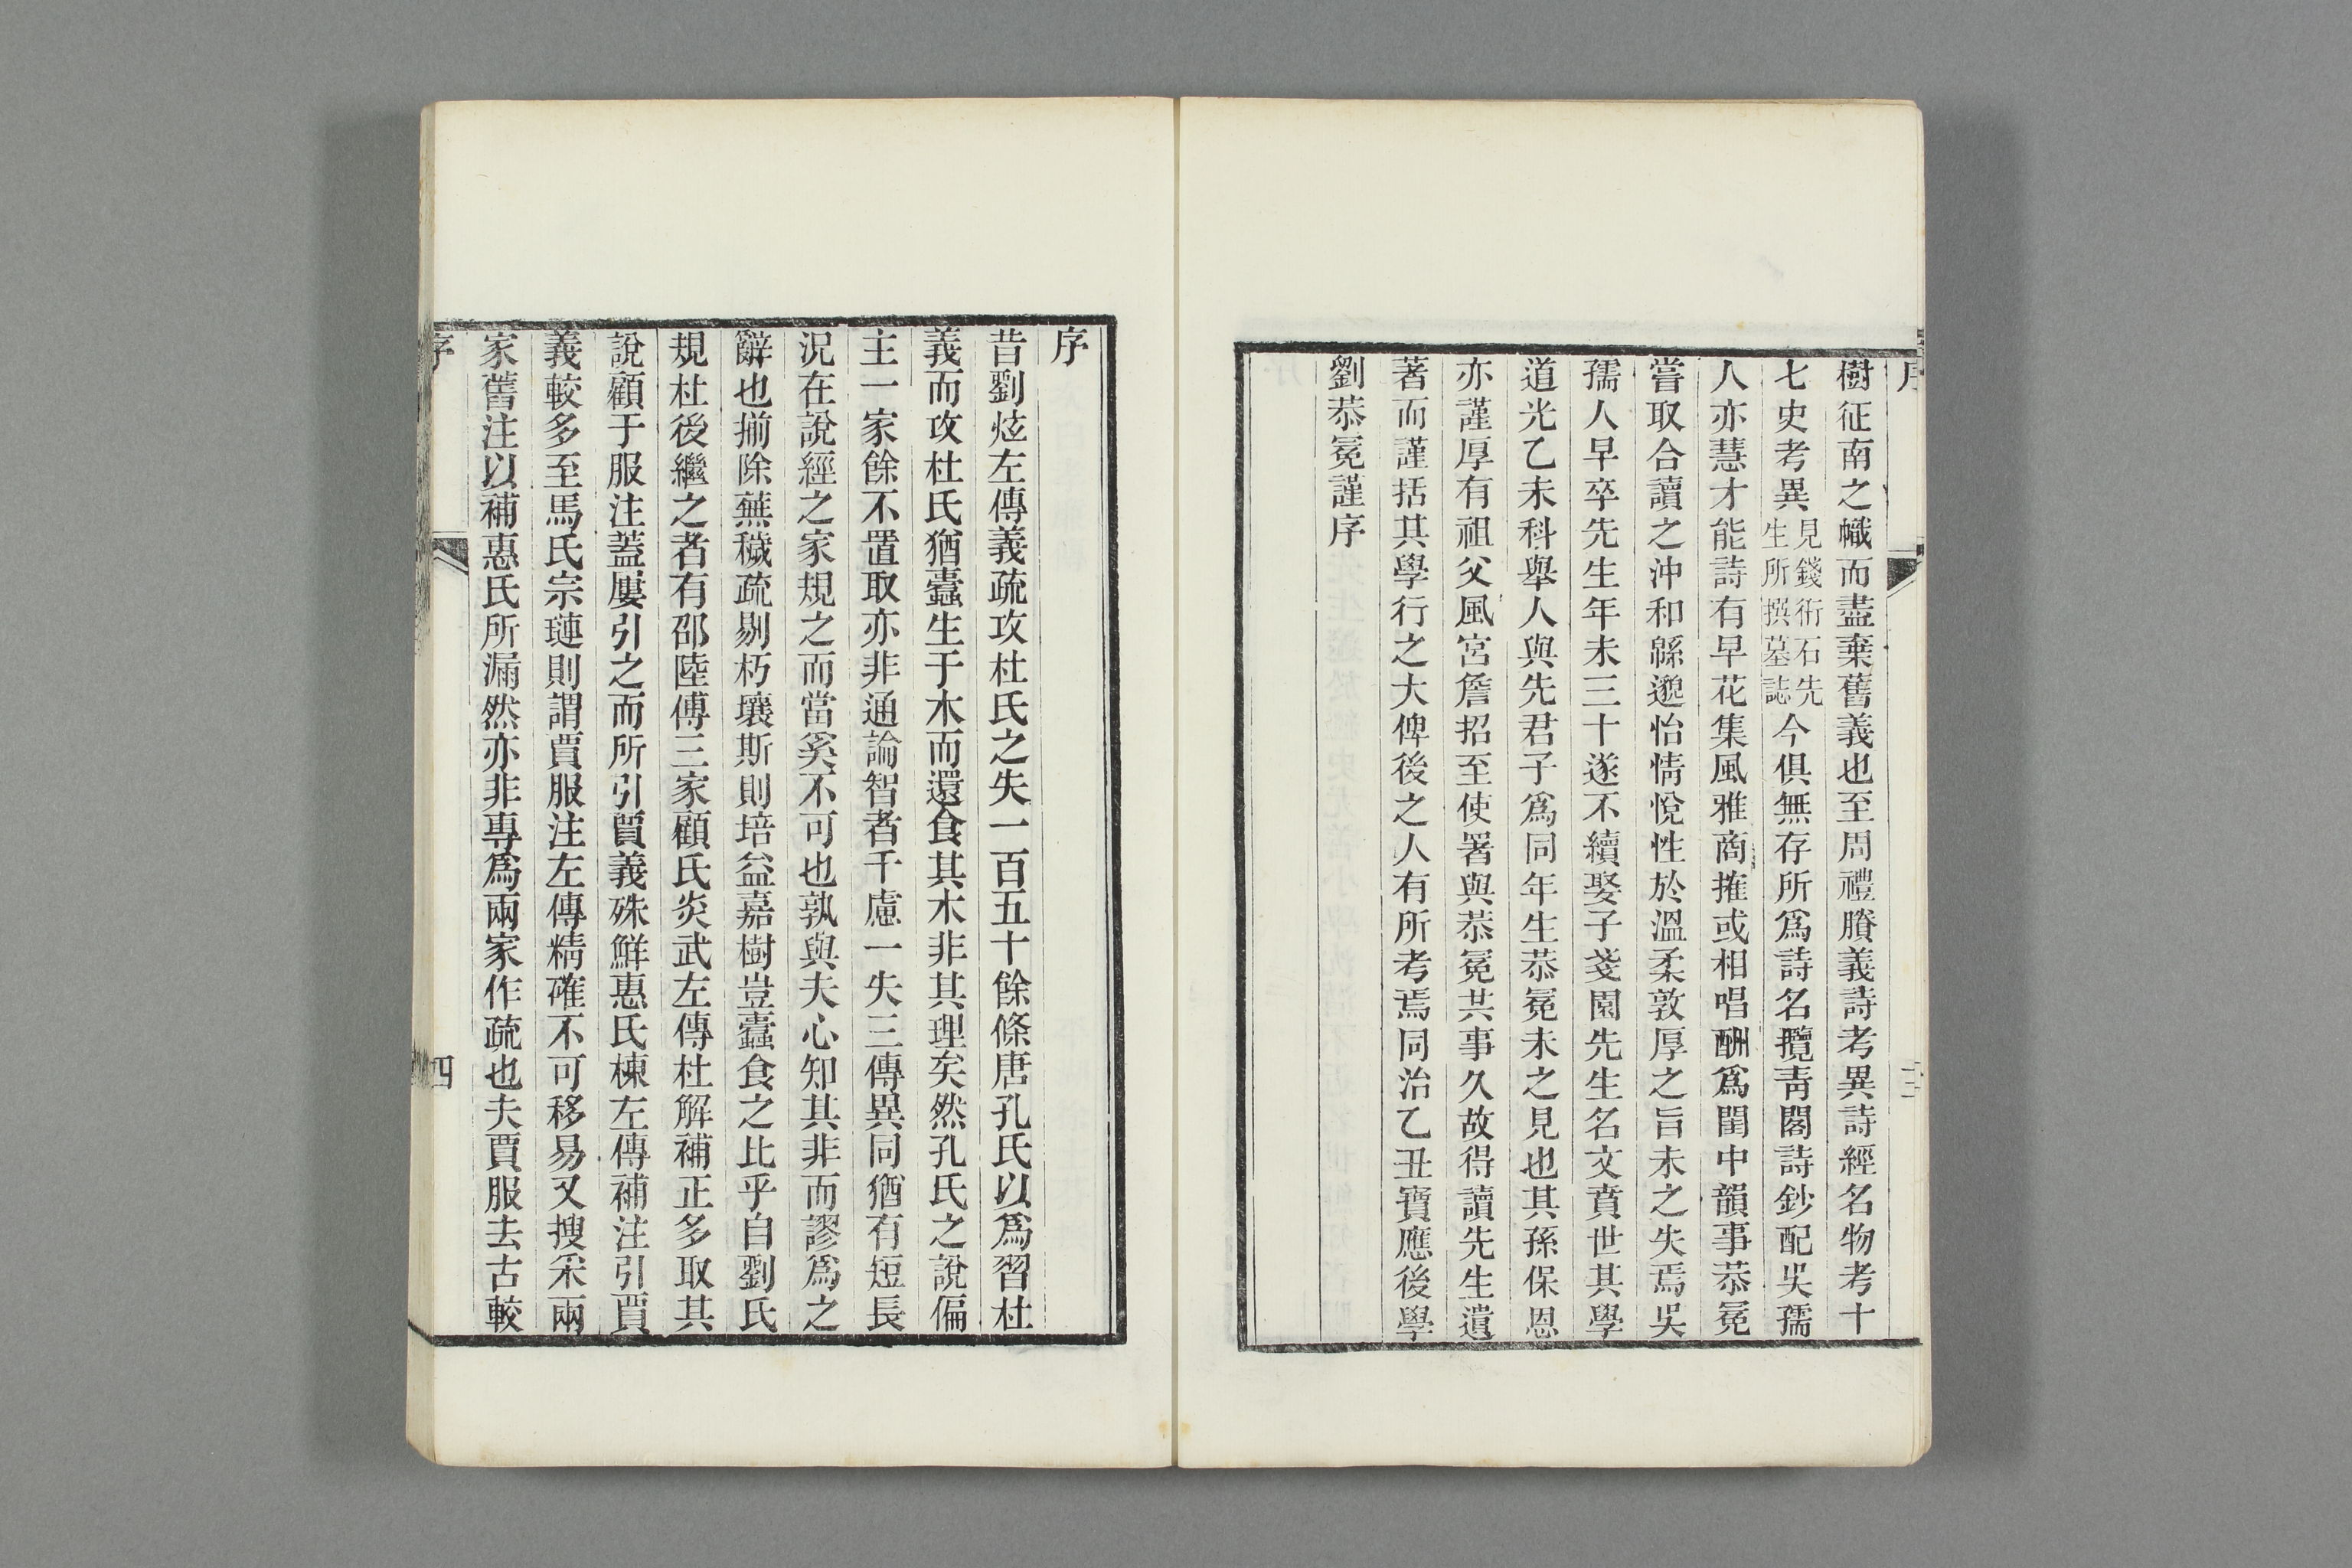 樹征南之幟而盡棄舊義也至周禮賸義詩考異詩經名物考十
七史考異見錢衎石先生所撰墓誌今俱無存所爲詩名攬青閣詩鈔配吳孺
人亦慧才能詩有早花集風雅商搉或相唱酬爲閨中韻事恭冕
嘗取合讀之沖和緜邈怡情悅性於溫柔敦厚之旨未之失焉吳
孺人早卒先生年未三十遂不續娶子茇園先生名文賁世其學
道光乙未科舉人與先君子爲同年生恭冕未之見也其孫保恩
亦謹厚有祖父風宮詹招至使署與恭冕共事久故得讀先生遺
著而謹括其學行之大俾後之人有所考焉同治乙丑寶應後學
劉恭冕謹序
序
昔劉炫左傳義疏攻杜氏之失一百五十餘條唐孔氏以爲習杜
義而攻杜氏猶蠹生于木而還食其木非其理矣然孔氏之說偏
主一家餘不置取亦非通論智者千慮一失三傳異同猶有短長
況在說經之家規之而當奚不可也孰與夫心知其非而謬爲之
辭也揃除蕪穢疏剔朽壤斯則培益嘉樹豈蠹食之比乎自劉氏
規杜後繼之者有邵陸傅三家顧氏炎武左傳杜解補正多取其
說顧于服注蓋屢引之而所引賈義殊鮮惠氏棟左傳補注引賈
義較多至馬氏宗璉則謂賈服注左傳精確不可移易又搜采兩
家舊注以補惠氏所漏然亦非專爲兩家作疏也夫賈服去古較
序
四